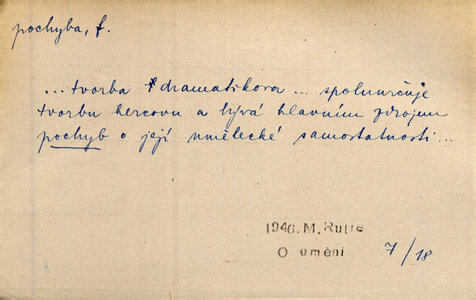 pochyba, f.
... tvorba dramatikova ... spoluurčuje
tvorbu hercovu a bývá hlavním zdrojem
pochyb o její umělecké samostatnosti ...
1946. M. Rutte
O umění 7/18